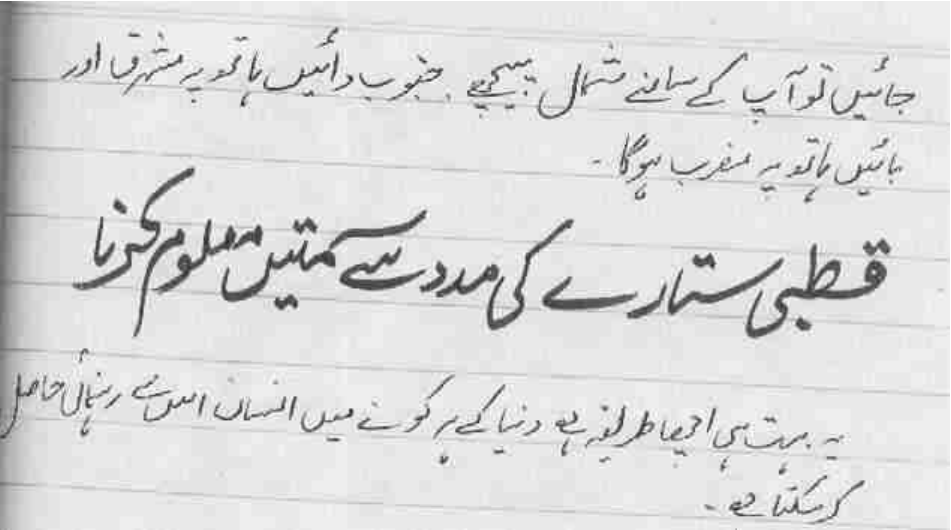 جائیں تو آپ کے سامنے شمال پیچھے جنوب دائیں ہاتھ پہ مشرق اور
بائیں ہاتھ پہ مغرب ہوگا۔
قطبی ستارے کی مدد سے سمتیں معلوم کرنا
یہ بہت ہی اچھا طریقہ ہے دنیا کے ہر کونے میں انسان اس سے رہنمائی حاصل
کر سکتا ہے۔